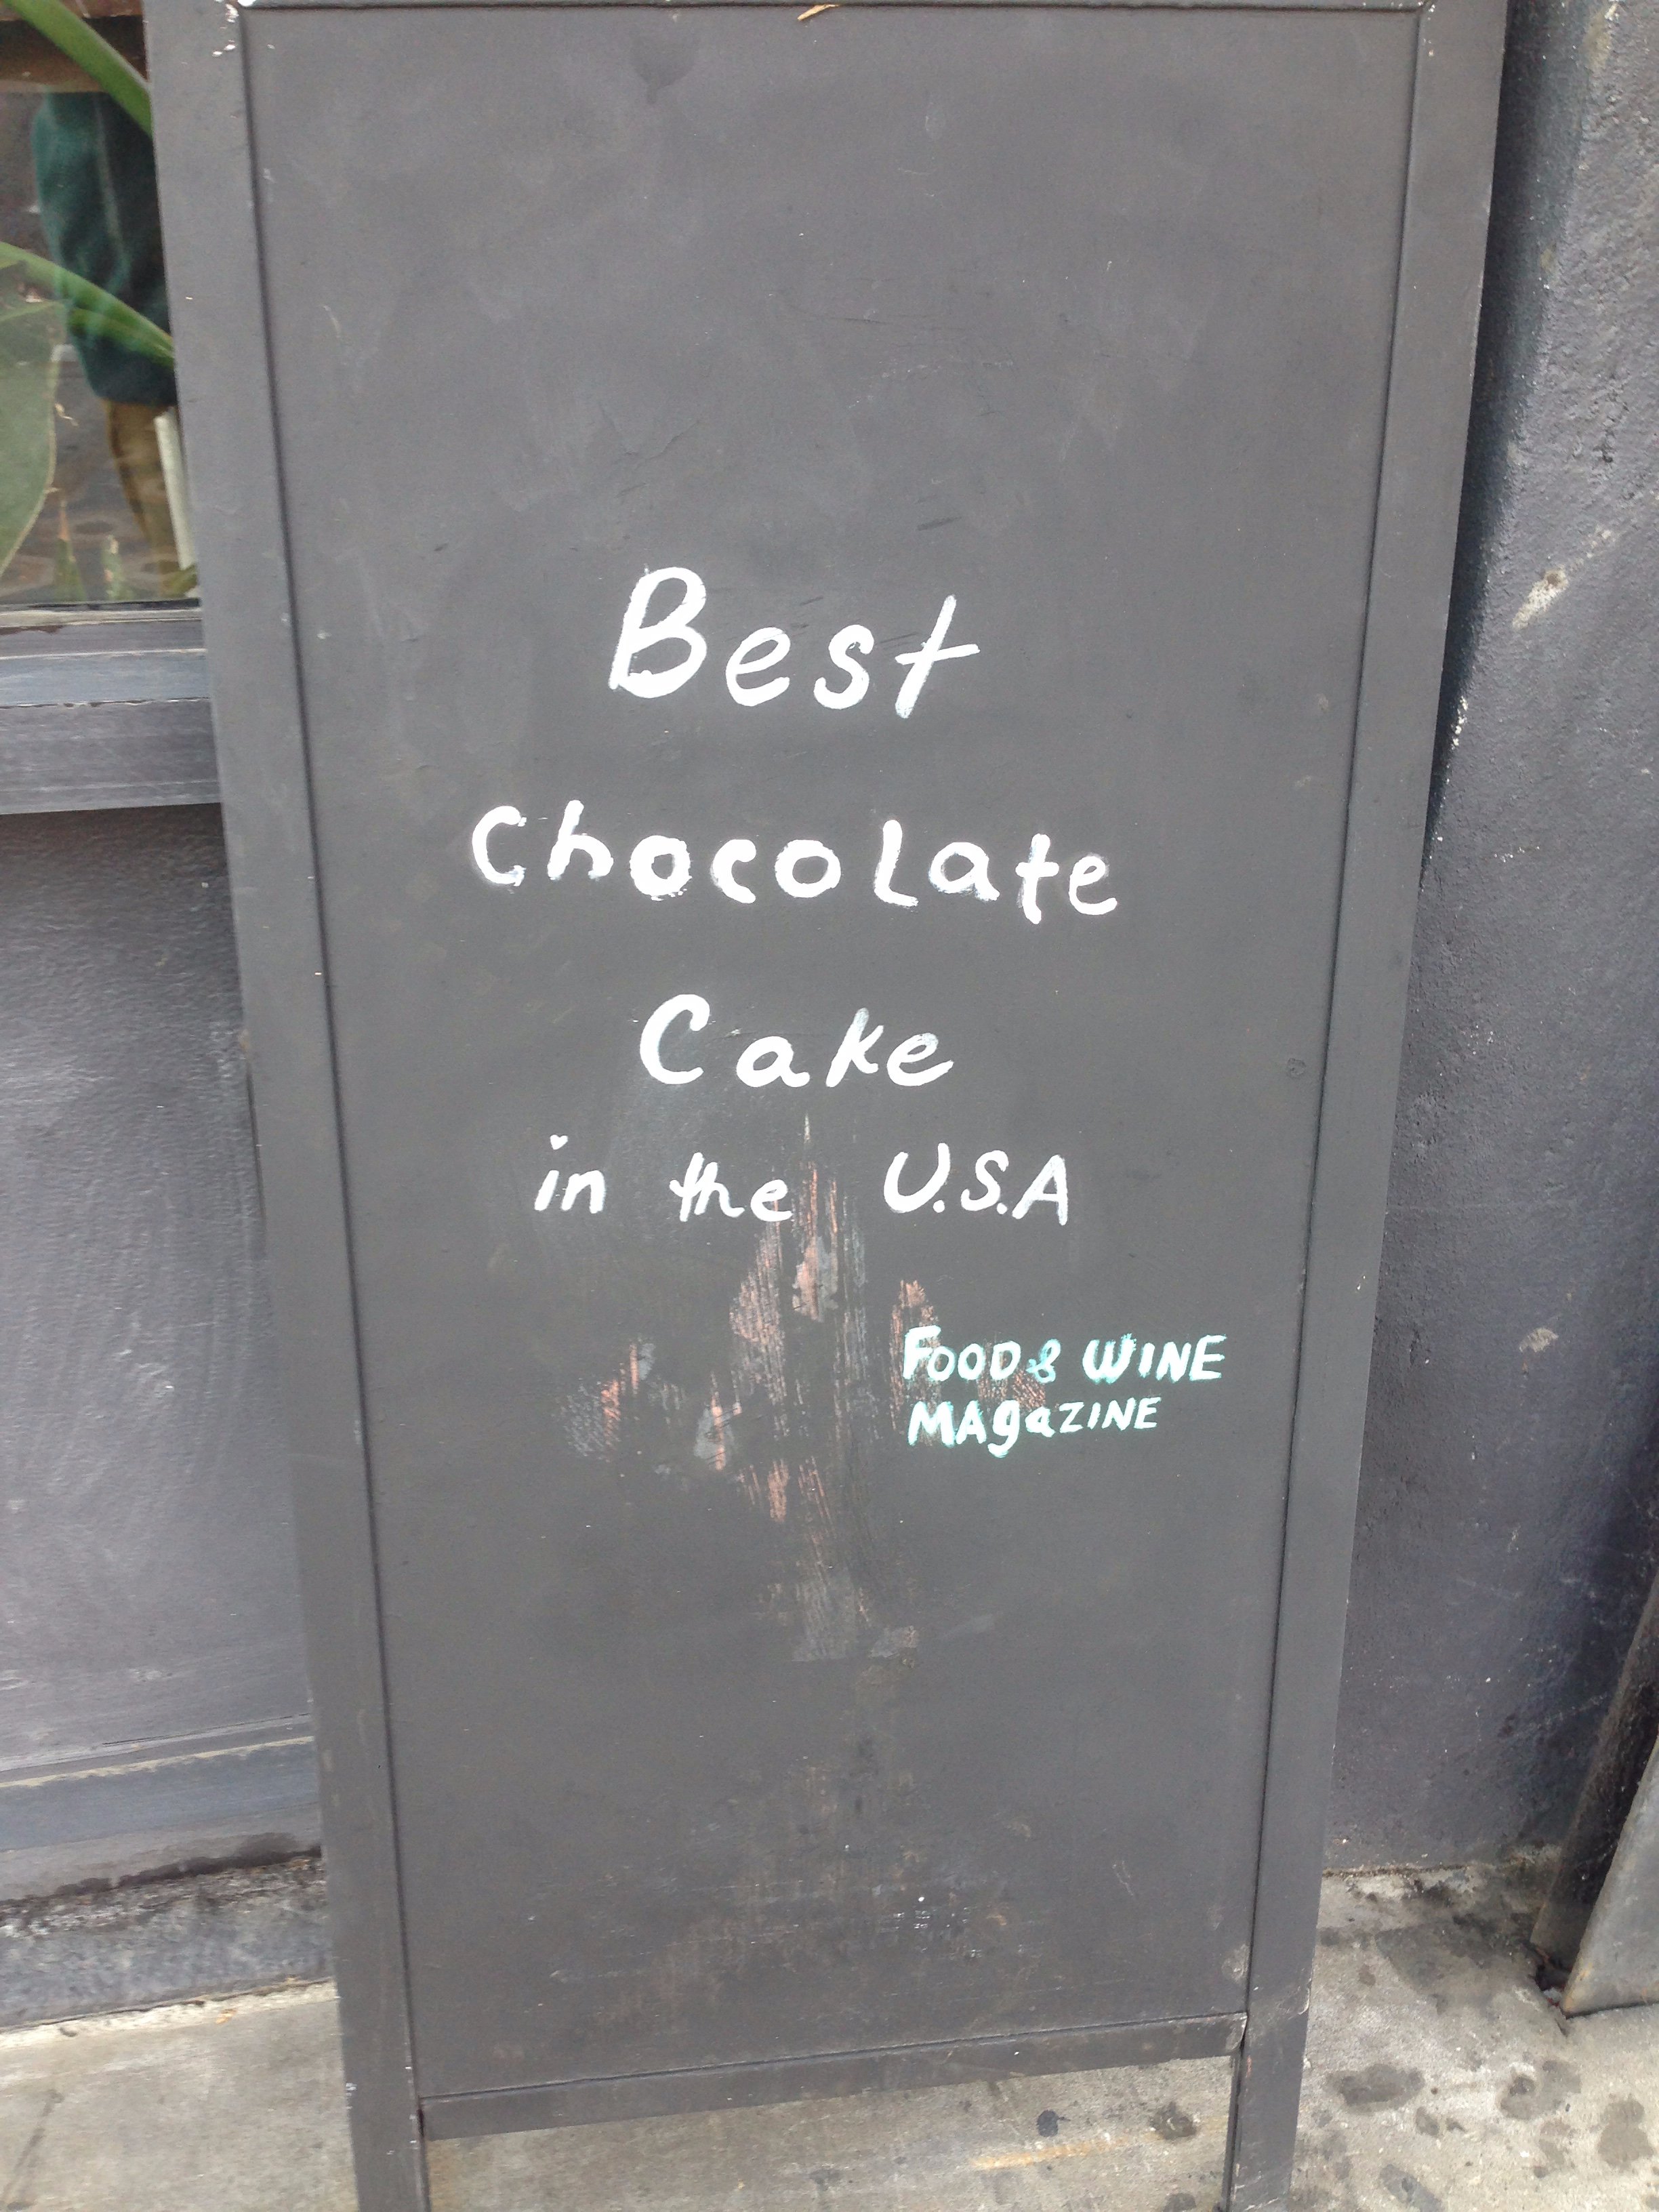 Best
Chocolate
Cake
in the U.S.A
FOOD & WINE
MAgaZINE